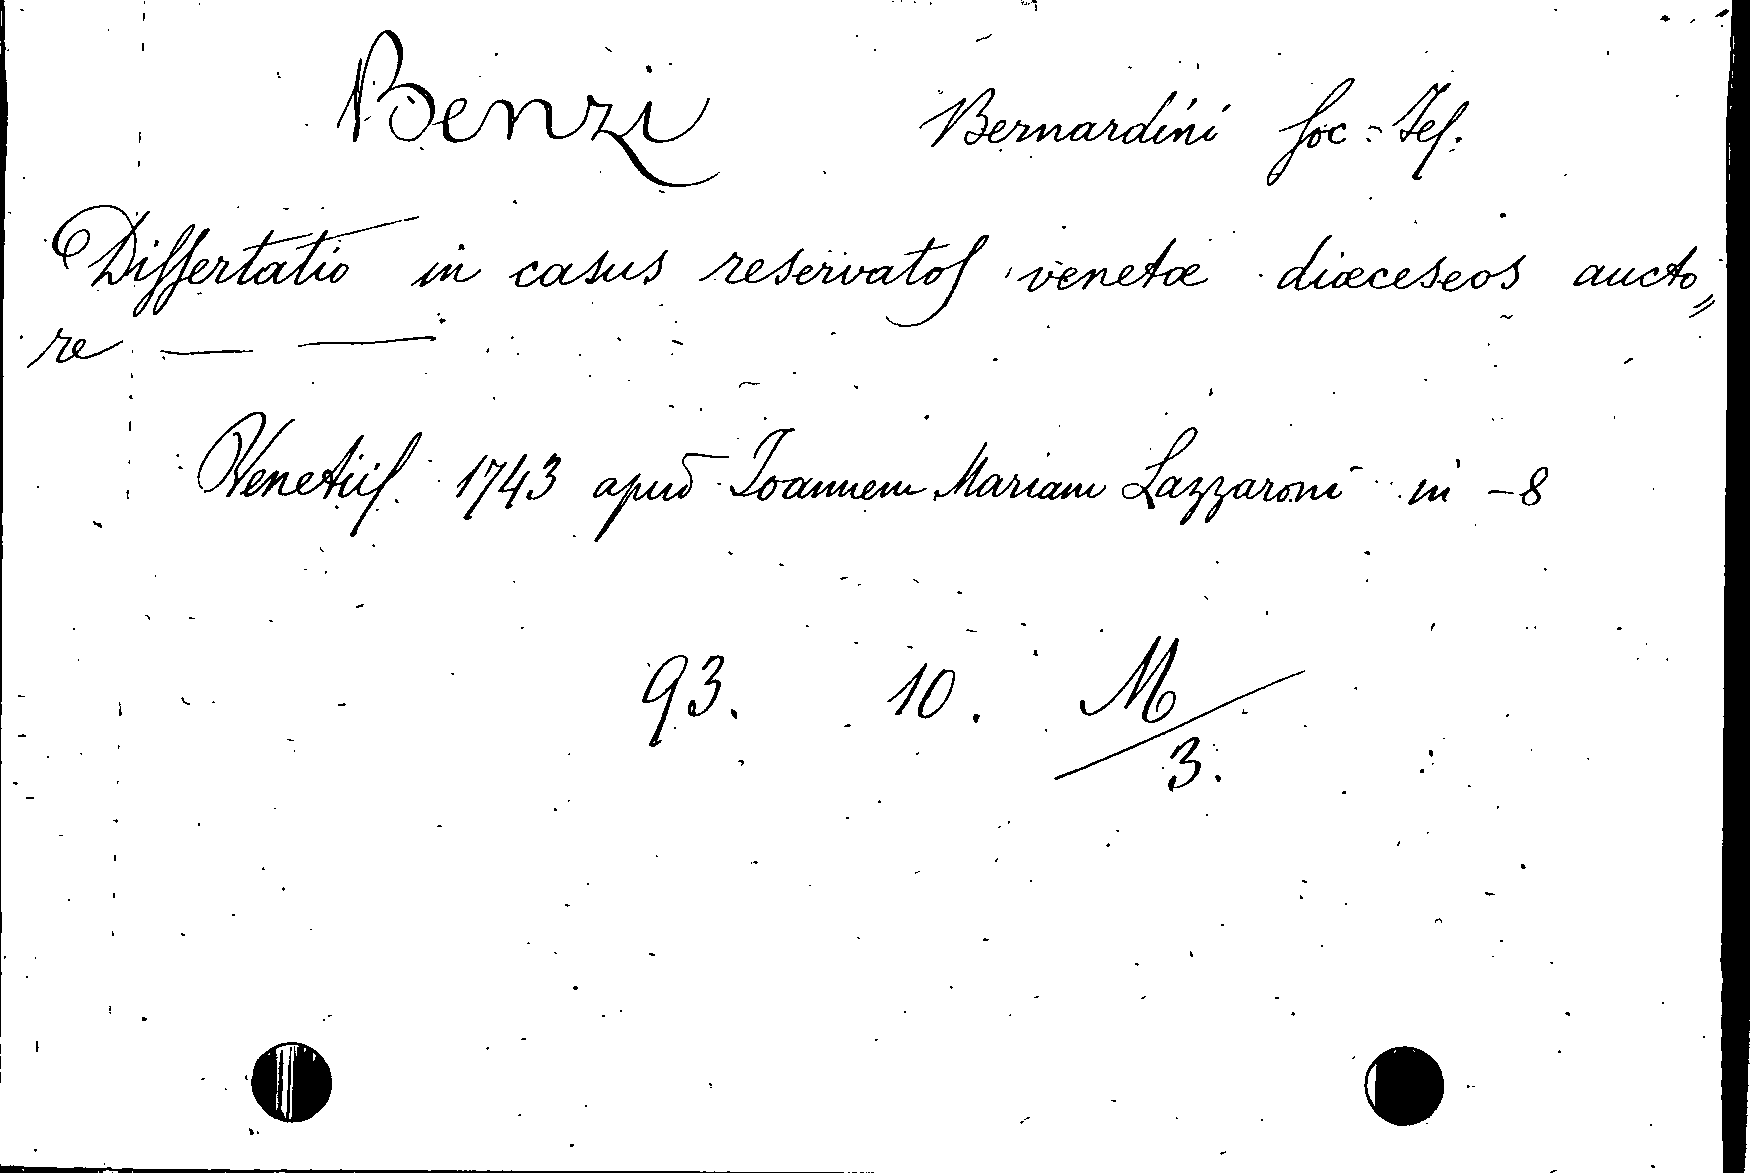 Benzi Bernardini Soc=Jes.
Dissertatio in casus reservatos venetæ diæceseos aucto„
re — —
Venetiis. 1743 apud Ioannem Mariam Lazzaroni in -8
93. 10. M/3.